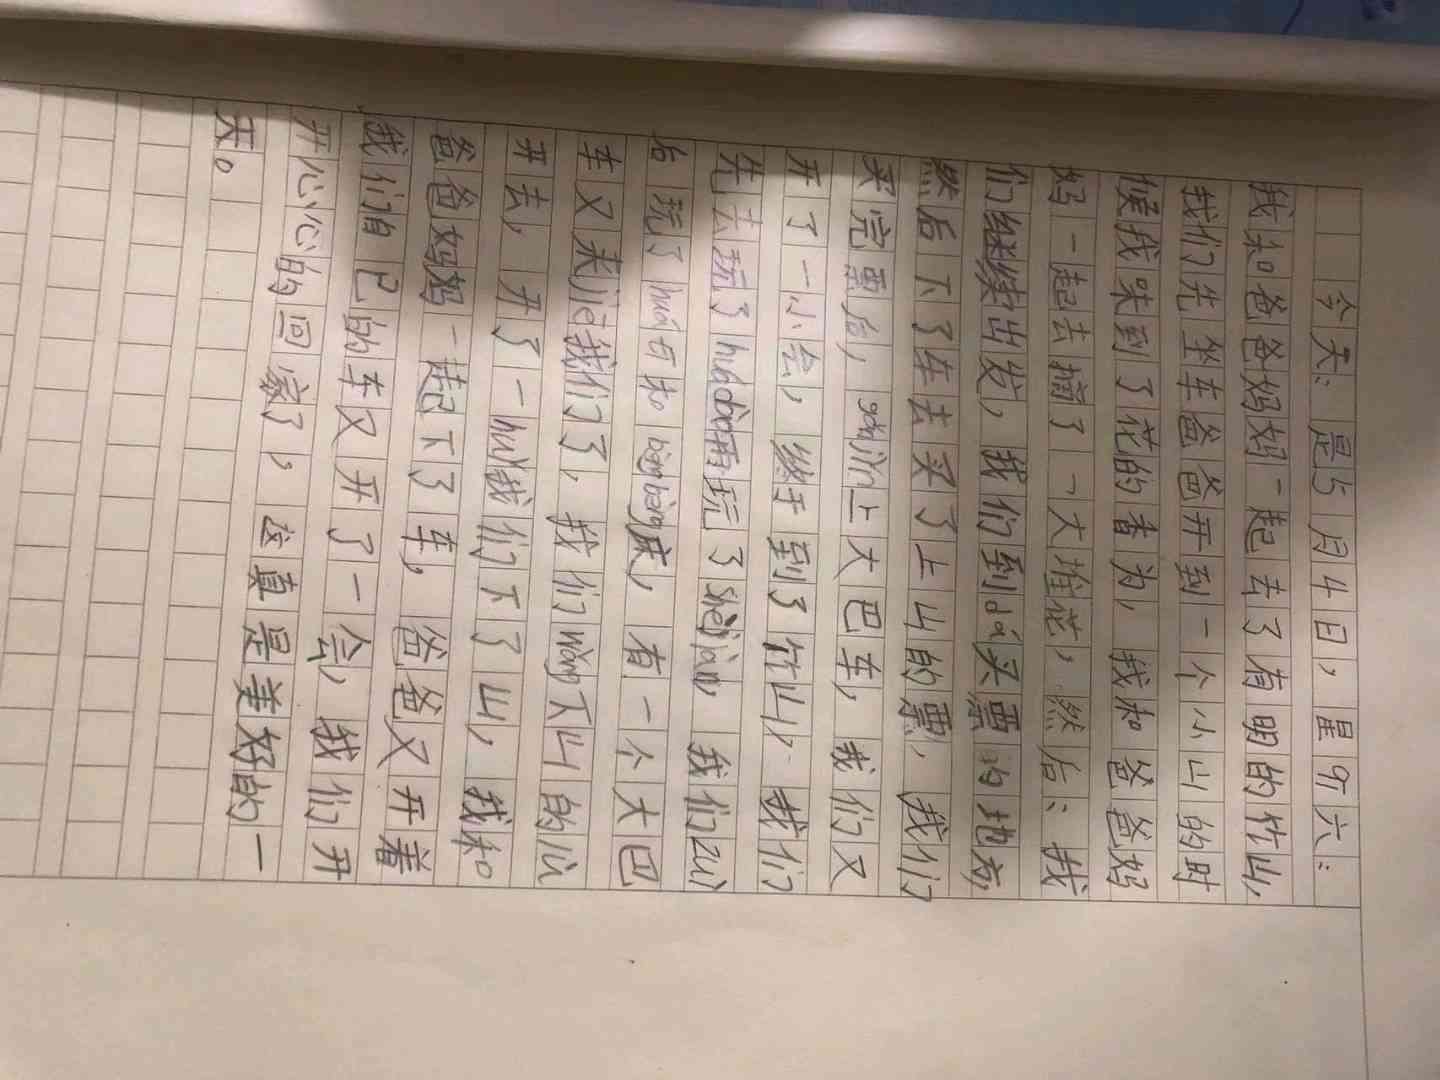 今天:是5月4日,星期六:
我和爸爸妈妈一起去了有明的竹山,
我们先坐车爸爸开到一个小山的时
候我味到了花的香为,我和爸爸妈
妈一起去摘了一大堆花,然后:我
们继续出发,我们到dá买票的地方,
然后下了车去买了上山的票,我们
买完票后,gǎnjǐn上大巴车,我们又
开了一小会,终于到了竹山,我们
先去玩了huádào再玩了shèjiàn,我们zuì
后玩了huá和bèngbèng床,有一个大巴
车又来jiē我们了,我们wǎng下山的心
开去,开了一huì我们下了山,我和
爸爸妈妈一起下了车,爸爸又开着
我们自己的车又开了一会,我们开
开心心的回家了,这真是美好的一
天。